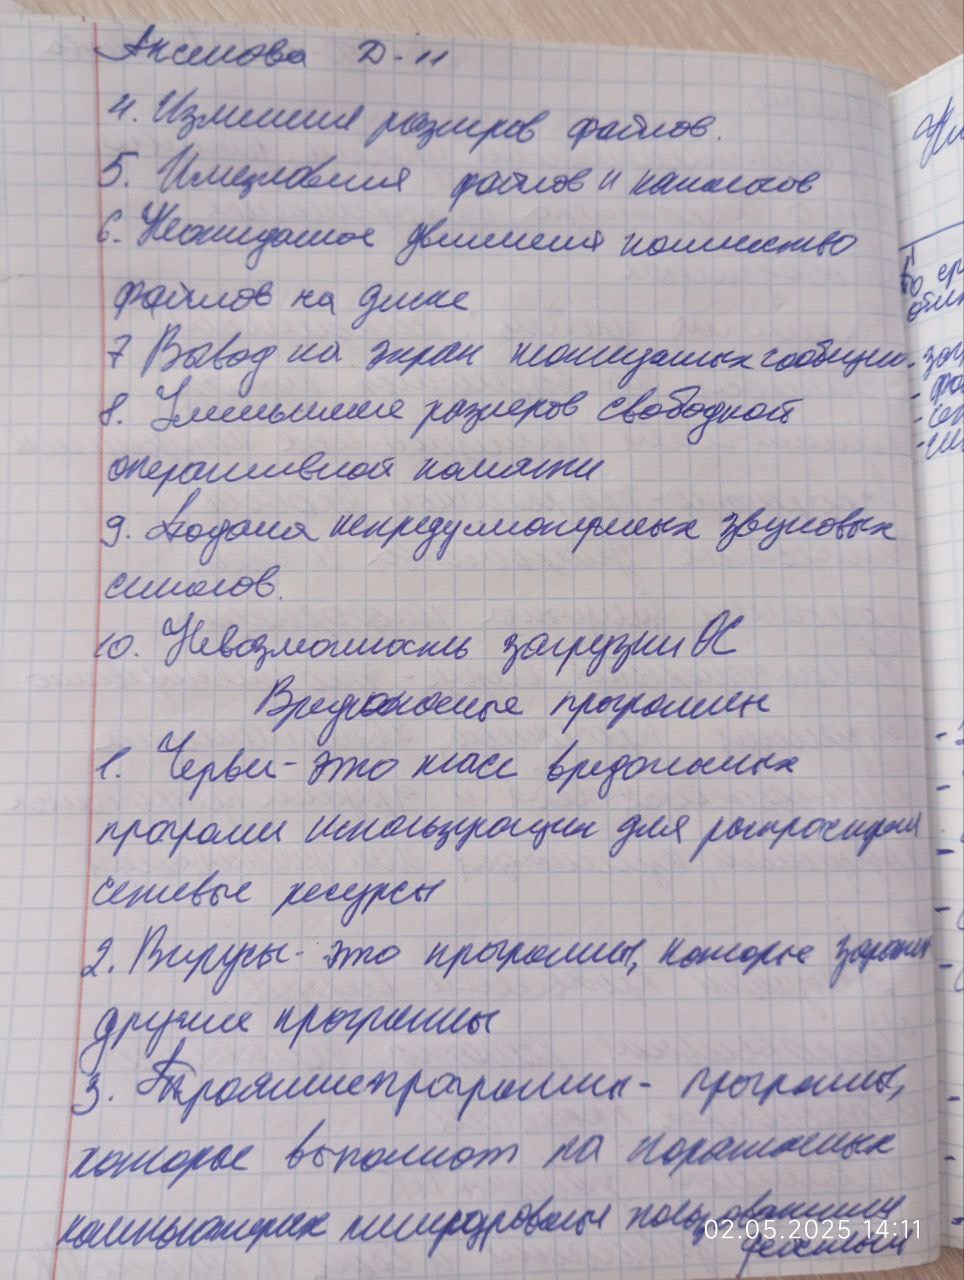 Аксенова Д-11
4. Изменения размеров файлов.
5. Исчезновения файлов и каталогов
6. Неожидаемое увеличения количество
файлов на диске
7 Вывод на экран неожиданных сообщен.
8. Уменьшение размеров свободной
оперативной памяти
9. Подача непредусмотренных звуковых
сигналов.
10. Невозможность загрузки ОС
Вредоносные программы
1. Черви - это класс вредоносных
программ использующих для распространения
сетевые ресурсы
2. Вирусы - это программы, которые заражают
другие программы
3. Троянские программы - программы,
которые выполняют на пораженных
компьютерах пользователями
действия
02.05.2025 14:11
во
-
-
-
-